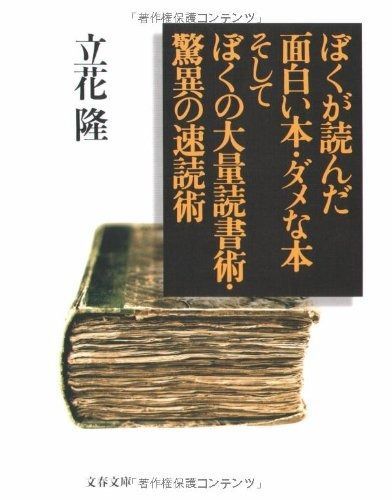 「著作権保護コンテンツ」
ぼくが読んだ
面白い本・ダメな本
そして
ぼくの大量読書術・
驚異の速読術
立花 隆
文春文庫「著作権保護コンテンツ」